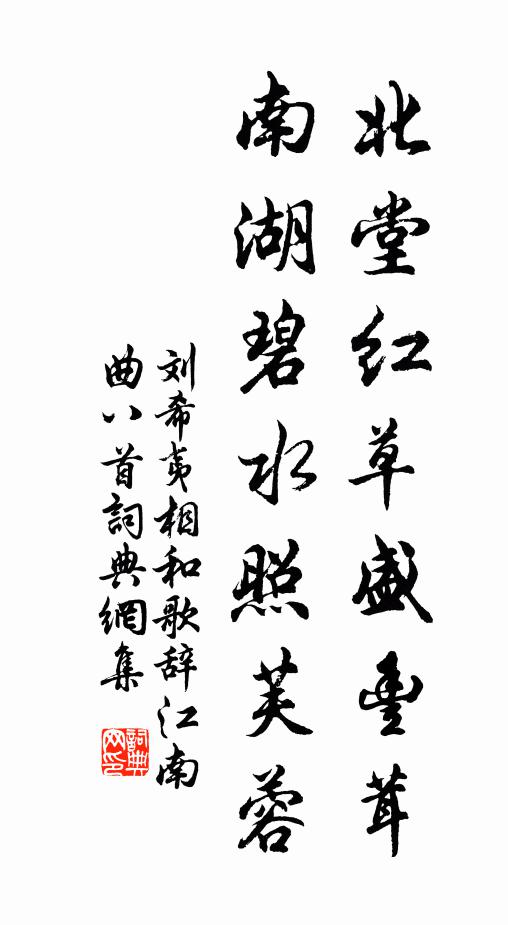 北堂红草盛豊茸
南湖碧水照芙蓉
刘希夷相和歌辞江南
曲八首詞典網集
詞典
网印